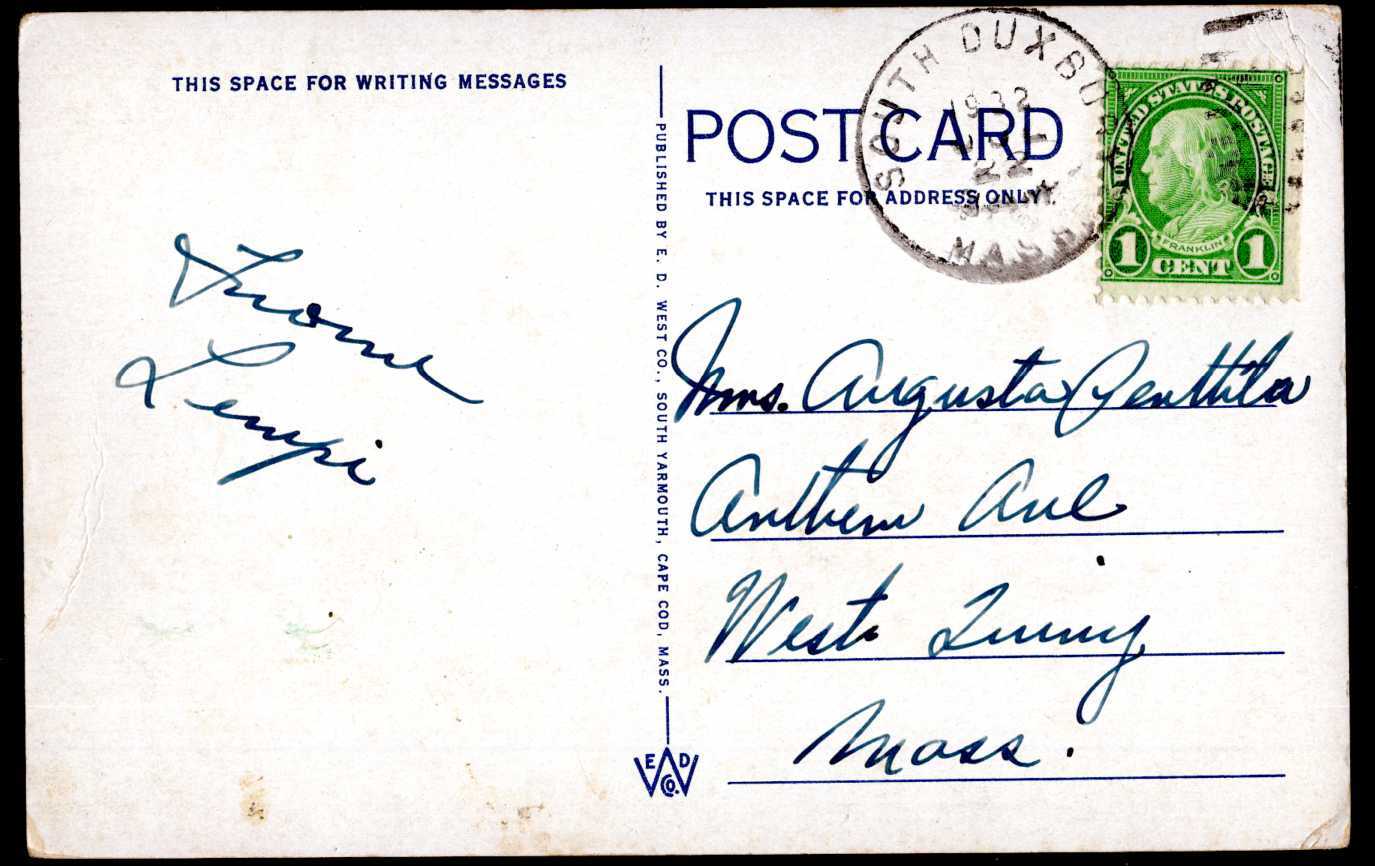 THIS SPACE FOR WRITING MESSAGES
POST CARD
THIS SPACE FOR ADDRESS ONLY.
SOUTH DUXBU
1932
22
MASS
UNITED STATES POSTAGE
FRANKLIN
1 CENT 1
From
Lempi
PUBLISHED BY E. D. WEST CO., SOUTH YARMOUTH, CAPE COD, MASS.
Mrs. Augusta Penttila
Anthem Ave
West Quincy
Mass.
E D
W Co.